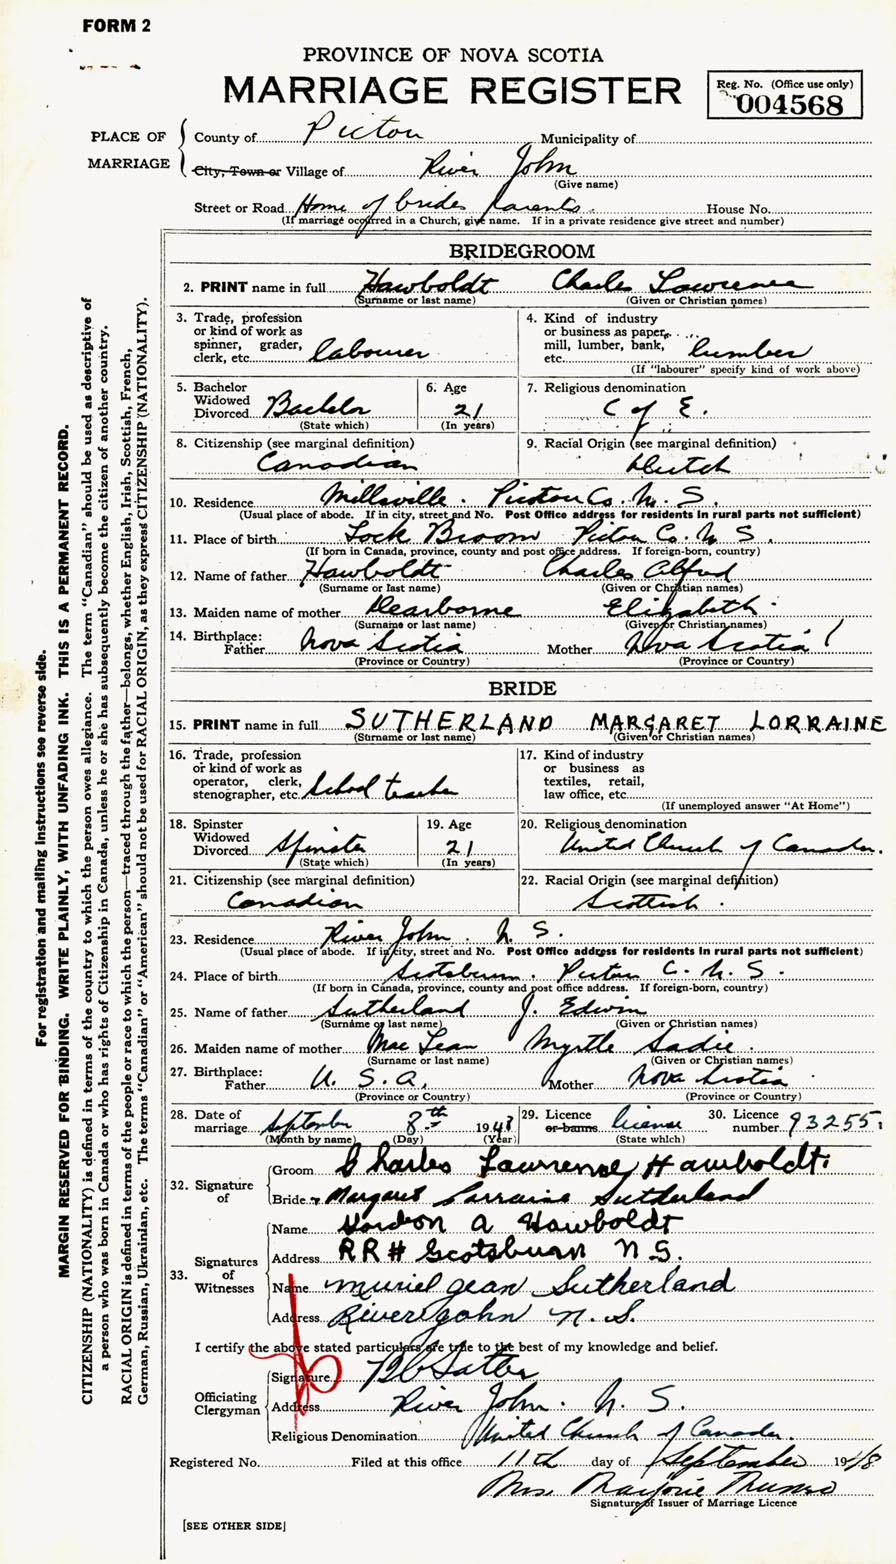 FORM 2
PROVINCE OF NOVA SCOTIA
MARRIAGE REGISTER
Reg. No. (Office use only)
004568
PLACE OF MARRIAGE
County of Pictou Municipality of
City, Town or Village of River John
(Give name)
Street or Road Home of brides parents. House No.
(If marriage occurred in a Church, give name. If in a private residence give street and number)
BRIDEGROOM
2. PRINT name in full Hawboldt Charles Lawrence
(Surname or last name) (Given or Christian names)
3. Trade, profession or kind of work as spinner, grader, clerk, etc. labourer
4. Kind of industry or business as paper, mill, lumber, bank, etc. lumber
(If "labourer" specify kind of work above)
5. Bachelor Widowed Divorced Bachelor
(State which)
6. Age 21
(In years)
7. Religious denomination
C of E.
8. Citizenship (see marginal definition)
Canadian
9. Racial Origin (see marginal definition)
Dutch
10. Residence Millsville. Pictou Co. N. S.
(Usual place of abode. If in city, street and No. Post Office address for residents in rural parts not sufficient)
11. Place of birth Lock Broom Pictou Co. N S.
(If born in Canada, province, county and post office address. If foreign-born, country)
12. Name of father Hawboldt Charles Alfred
(Surname or last name) (Given or Christian names)
13. Maiden name of mother Dearborne Elizabeth
(Surname or last name) (Given or Christian names)
14. Birthplace: Father Nova Scotia Mother Nova Scotia
(Province or Country) (Province or Country)
BRIDE
15. PRINT name in full SUTHERLAND MARGARET LORRAINE
(Surname or last name) (Given or Christian names)
16. Trade, profession or kind of work as operator, clerk, stenographer, etc. School teacher
17. Kind of industry or business as textiles, retail, law office, etc.
(If unemployed answer "At Home")
18. Spinster Widowed Divorced Spinster
(State which)
19. Age 21
(In years)
20. Religious denomination
United Church of Canada.
21. Citizenship (see marginal definition)
Canadian
22. Racial Origin (see marginal definition)
Scottish.
23. Residence River John. N. S.
(Usual place of abode. If in city, street and No. Post Office address for residents in rural parts not sufficient)
24. Place of birth Scotsburn. Pictou C. N. S.
(If born in Canada, province, county and post office address. If foreign-born, country)
25. Name of father Sutherland J. Edwin
(Surname or last name) (Given or Christian names)
26. Maiden name of mother MacLean Myrtle Sadie.
(Surname or last name) (Given or Christian names)
27. Birthplace: Father U. S. A. Mother Nova Scotia
(Province or Country) (Province or Country)
28. Date of marriage September 8th 1948
(Month by name) (Day) (Year)
29. Licence or banns license
(State which)
30. Licence number 93255
32. Signature of
Groom Charles Lawrence Hawboldt.
Bride Margaret Lorraine Sutherland
33. Signatures of Witnesses
Name Gordon A Hawboldt
Address RR# Scotsburn N S.
Name Muriel Jean Sutherland
Address River John N. S.
I certify the above stated particulars are true to the best of my knowledge and belief.
Officiating Clergyman
Signature
Address River John. N. S.
Religious Denomination United Church of Canada.
Registered No. Filed at this office 11th day of September 1948
Mrs. Marjorie
Signature of Issuer of Marriage Licence
[SEE OTHER SIDE]
For registration and mailing instructions see reverse side.
MARGIN RESERVED FOR BINDING. WRITE PLAINLY, WITH UNFADING INK. THIS IS A PERMANENT RECORD.
CITIZENSHIP (NATIONALITY) is defined in terms of the country to which the person owes allegiance. The term "Canadian" should be used as descriptive of
a person who was born in Canada or who has rights of Citizenship in Canada, unless he or she has subsequently become the citizen of another country.
RACIAL ORIGIN is defined in terms of the people or race to which the person—traced through the father—belongs, whether English, Irish, Scottish, French,
German, Russian, Ukrainian, etc. The terms "Canadian" or "American" should not be used for RACIAL ORIGIN, as they express CITIZENSHIP (NATIONALITY).